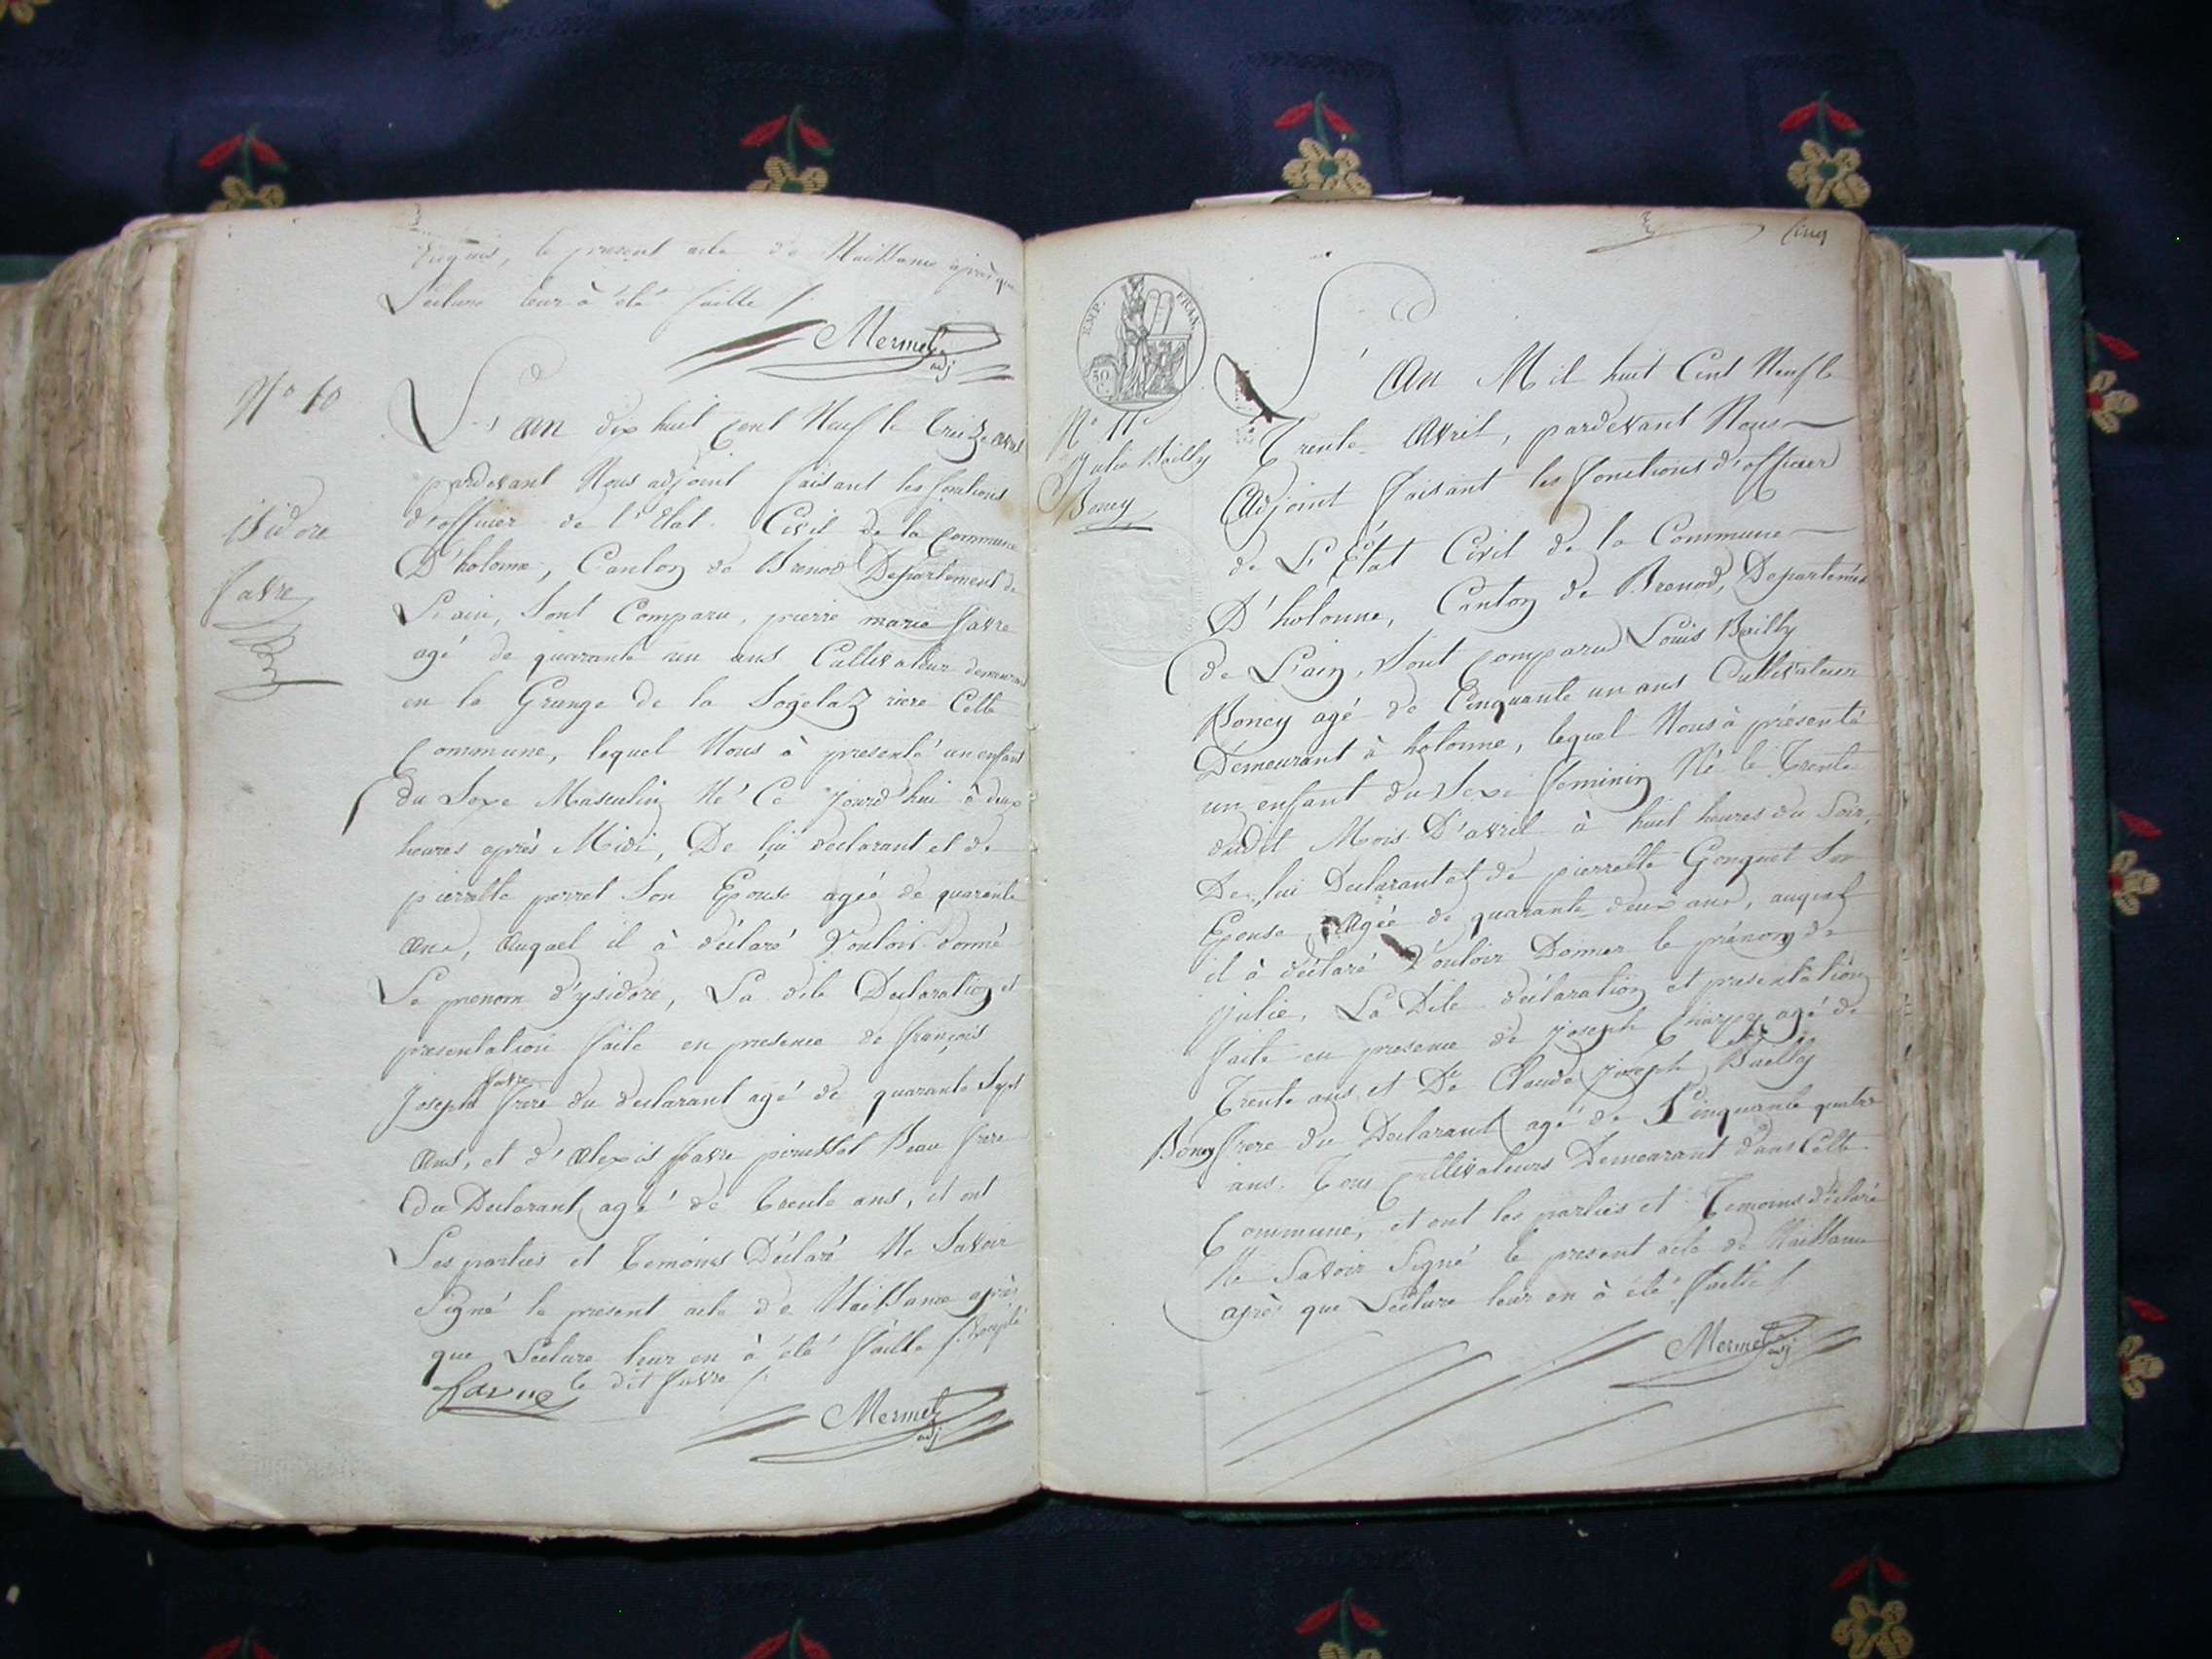 le present acte de Naissance après que
Lecture leur à été faitte /.
Mermet
adj
N° 10
isidore
favre
L'an dix huit cent Neuf le treize avril
pardevant Nous adjoint faisant les fonctions
d'officier de l'Etat Civil de la Commune
D'holonne, Canton de Brenod Departement de
L'ain, Sont Comparu, pierre marie favre
agé de quarante un ans Cultivateur demeurant
en la Grange de la Sogelaz riere Cette
Commune, lequel Nous à presenté un enfant
du Sexe Masculin Né Ce jourd'hui à deux
heures après Midi, De lui declarant et de
pierrette perret Son Epouse agée de quarente
ans, auquel il à déclaré Vouloir donné
Le prenom d'ysidore, La dite Declaration et
presentation faite en presence de françois
Joseph favre frere du declarant agé de quarante Sept
ans, et d'alexis favre Beau frere
du Declarant agé de trente ans, et ont
Les parties et temoins Déclaré Ne Savoir
Signé le present acte de Naissance après
que Lecture leur en à été faitte /. Excepté
le dit favre /.
favre
Mermet
adj
Cinq
EMP. FRAN.
50
C.
N° 11
Julie Bailly
Boncy
L'an Mil huit Cent Neuf le
Trente Avril, pardevant Nous
Adjoint faisant les fonctions d'officier
de L'Etat Civil de la Commune
D'holonne, Canton de Brenod, Departement
de L'ain, Sont comparu Louis Bailly
Boncy agé de Cinquante un ans Cultivateur
Demeurant à holonne, lequel Nous à présenté
un enfant du Sexe feminin Né le Trente
dudit Mois D'avril à huit heures du Soir,
De lui Declarant et de pierrette Gonguet Son
Epouse Agée de quarante deux ans, auquel
il à déclaré Vouloir Donner le prénom de
Julie, La Dite déclaration et presentation
faite en presence de joseph agé de
Trente ans et De Claude joseph Bailly
Boncy frere du Declarant agé de Cinquante quatre
ans. Tous Cultivateurs Demeurant dans Cette
Commune, et ont les parties et Temoins déclaré
Ne Savoir Signé le present acte de Naissance
après que Lecture leur en à été faitte /.
Mermet
adj